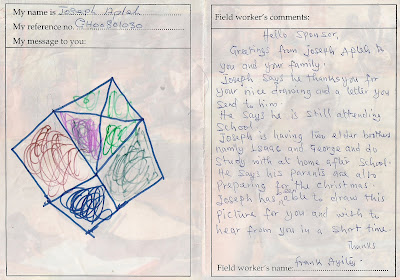 My name is Joseph Apleh
My reference no. GH00801030
My message to you:
Field worker's comments:
Hello Sponsor,
Greetings from Joseph Apleh to
you and your family.
Joseph says he thanks you for
your nice drawing and a letter you
send to him.
He says he is still attending
School.
Joseph is having two elder brothers
namly Isaac and George and do
Study with at home after school.
He says his parents are also
Preparing for the Christmas.
Joseph has, able to draw this
Picture for you and wish to
hear from you in a short time.
Thanks
Field worker's name: Frank